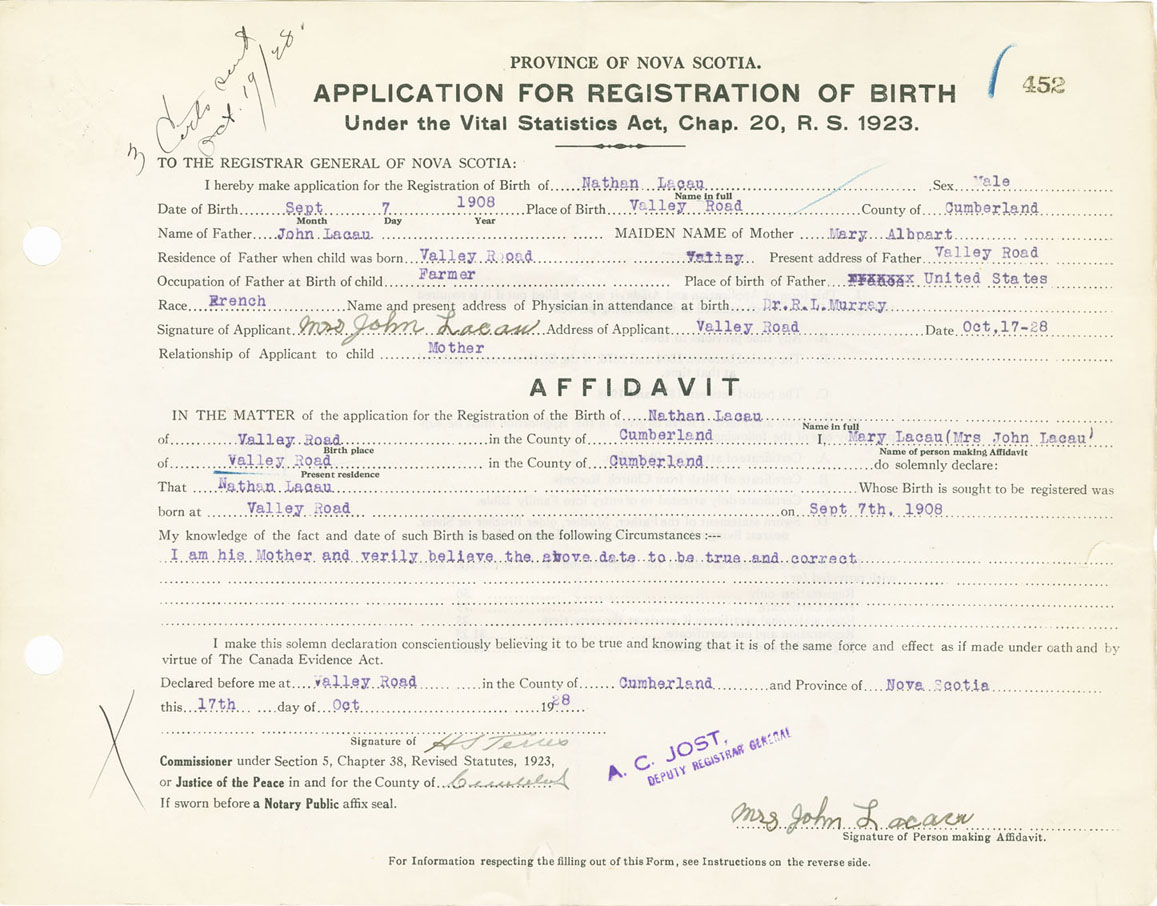 3 Certs sent
Oct. 19/28
PROVINCE OF NOVA SCOTIA.
452
APPLICATION FOR REGISTRATION OF BIRTH
Under the Vital Statistics Act, Chap. 20, R. S. 1923.
TO THE REGISTRAR GENERAL OF NOVA SCOTIA:
I hereby make application for the Registration of Birth of Nathan Lacau Sex Male
Name in full
Date of Birth Sept 7 1908 Place of Birth Valley Road County of Cumberland
Month Day Year
Name of Father John Lacau MAIDEN NAME of Mother Mary Albpart
Residence of Father when child was born Valley Rooad Present address of Father Valley Road
Occupation of Father at Birth of child Farmer Place of birth of Father United States
Race French Name and present address of Physician in attendance at birth Dr.R.L.Murray
Signature of Applicant Mrs John Lacau Address of Applicant Valley Road Date Oct,17-28
Relationship of Applicant to child Mother
AFFIDAVIT
IN THE MATTER of the application for the Registration of the Birth of Nathan Lacau
Name in full
of Valley Road in the County of Cumberland I, Mary Lacau(Mrs John Lacau)
Birth place Name of person making Affidavit
of Valley Road in the County of Cumberland do solemnly declare:
Present residence
That Nathan Lacau Whose Birth is sought to be registered was
born at Valley Road on Sept 7th, 1908
My knowledge of the fact and date of such Birth is based on the following Circumstances :---
I am his Mother and verily believe the above date to be true and correct
I make this solemn declaration conscientiously believing it to be true and knowing that it is of the same force and effect as if made under oath and by
virtue of The Canada Evidence Act.
Declared before me at Valley Road in the County of Cumberland and Province of Nova Scotia
this 17th day of Oct 1928
Signature of
A. C. JOST,
DEPUTY REGISTRAR GENERAL
Commissioner under Section 5, Chapter 38, Revised Statutes, 1923,
or Justice of the Peace in and for the County of Cumberland
If sworn before a Notary Public affix seal.
Mrs John Lacau
Signature of Person making Affidavit.
For Information respecting the filling out of this Form, see Instructions on the reverse side.